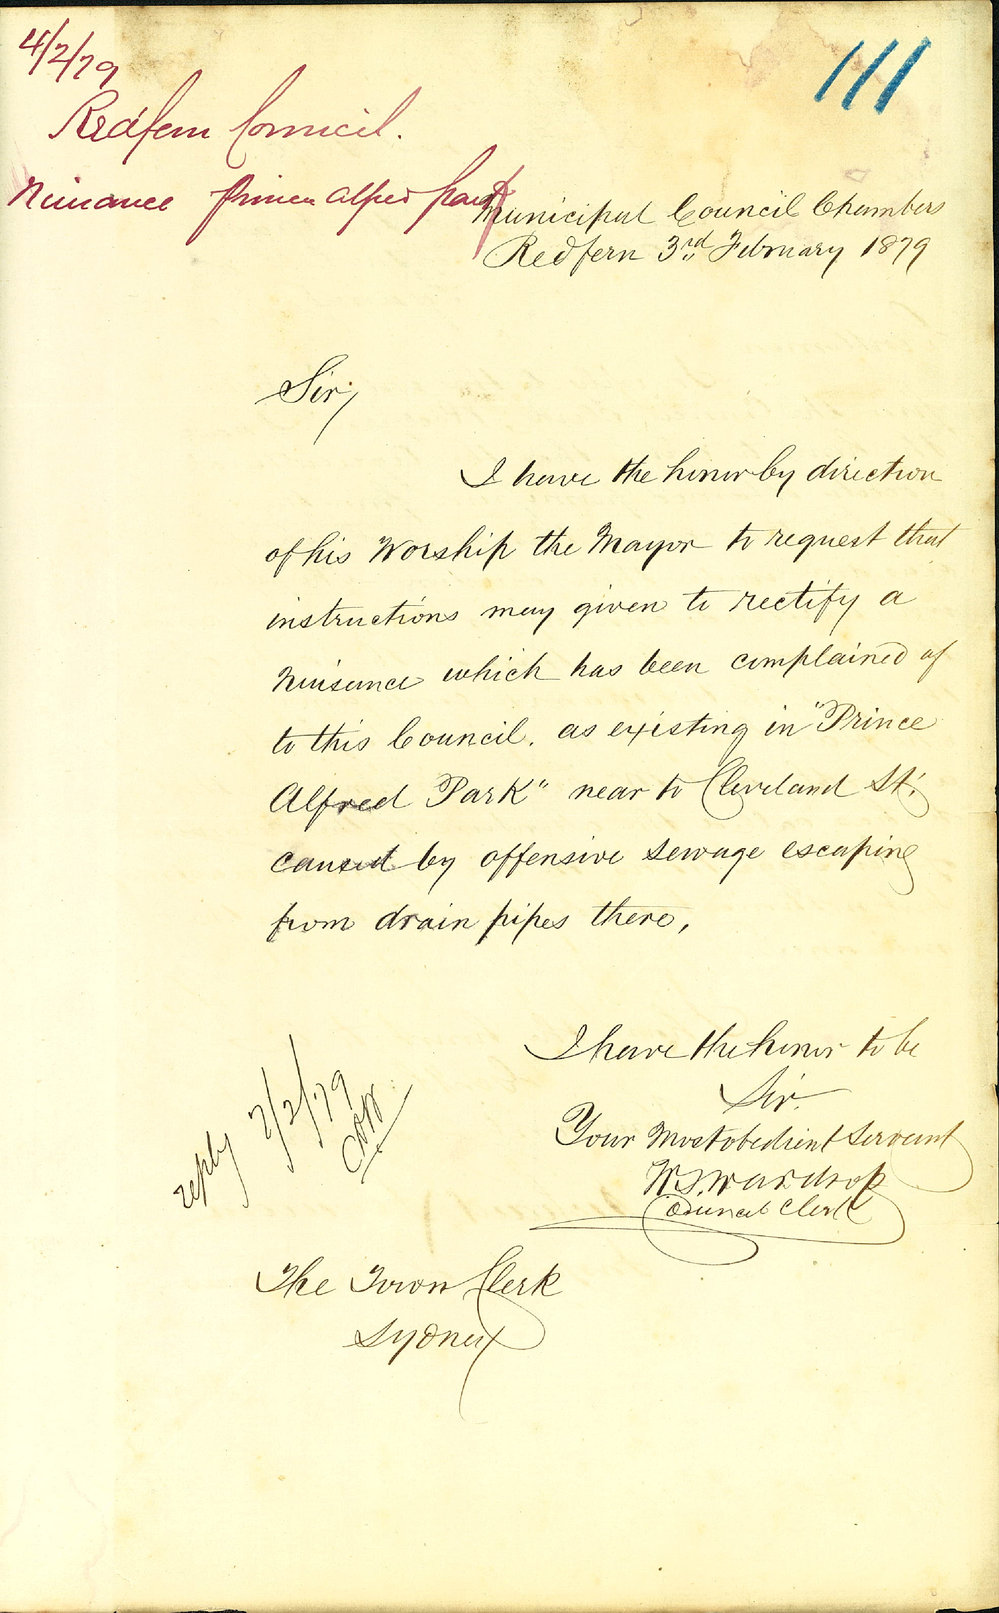 4/2/79
111
Redfern Council.
Nuisance Prince Alfred Park
Municipal Council Chambers
Redfern 3rd February 1879
Sir,
I have the honor by direction
of his Worship the Mayor to request that
instructions may given to rectify a
Nuisance which has been complained of
to this Council. as existing in "Prince
Alfred Park" near to Cleveland St.
caused by offensive sewage escaping
from drain pipes there,
I have the honor to be
Sir.
Your Most obedient Servant
W. J. Wardrop
Council Clerk
reply 7/2/79
The Town Clerk
Sydney